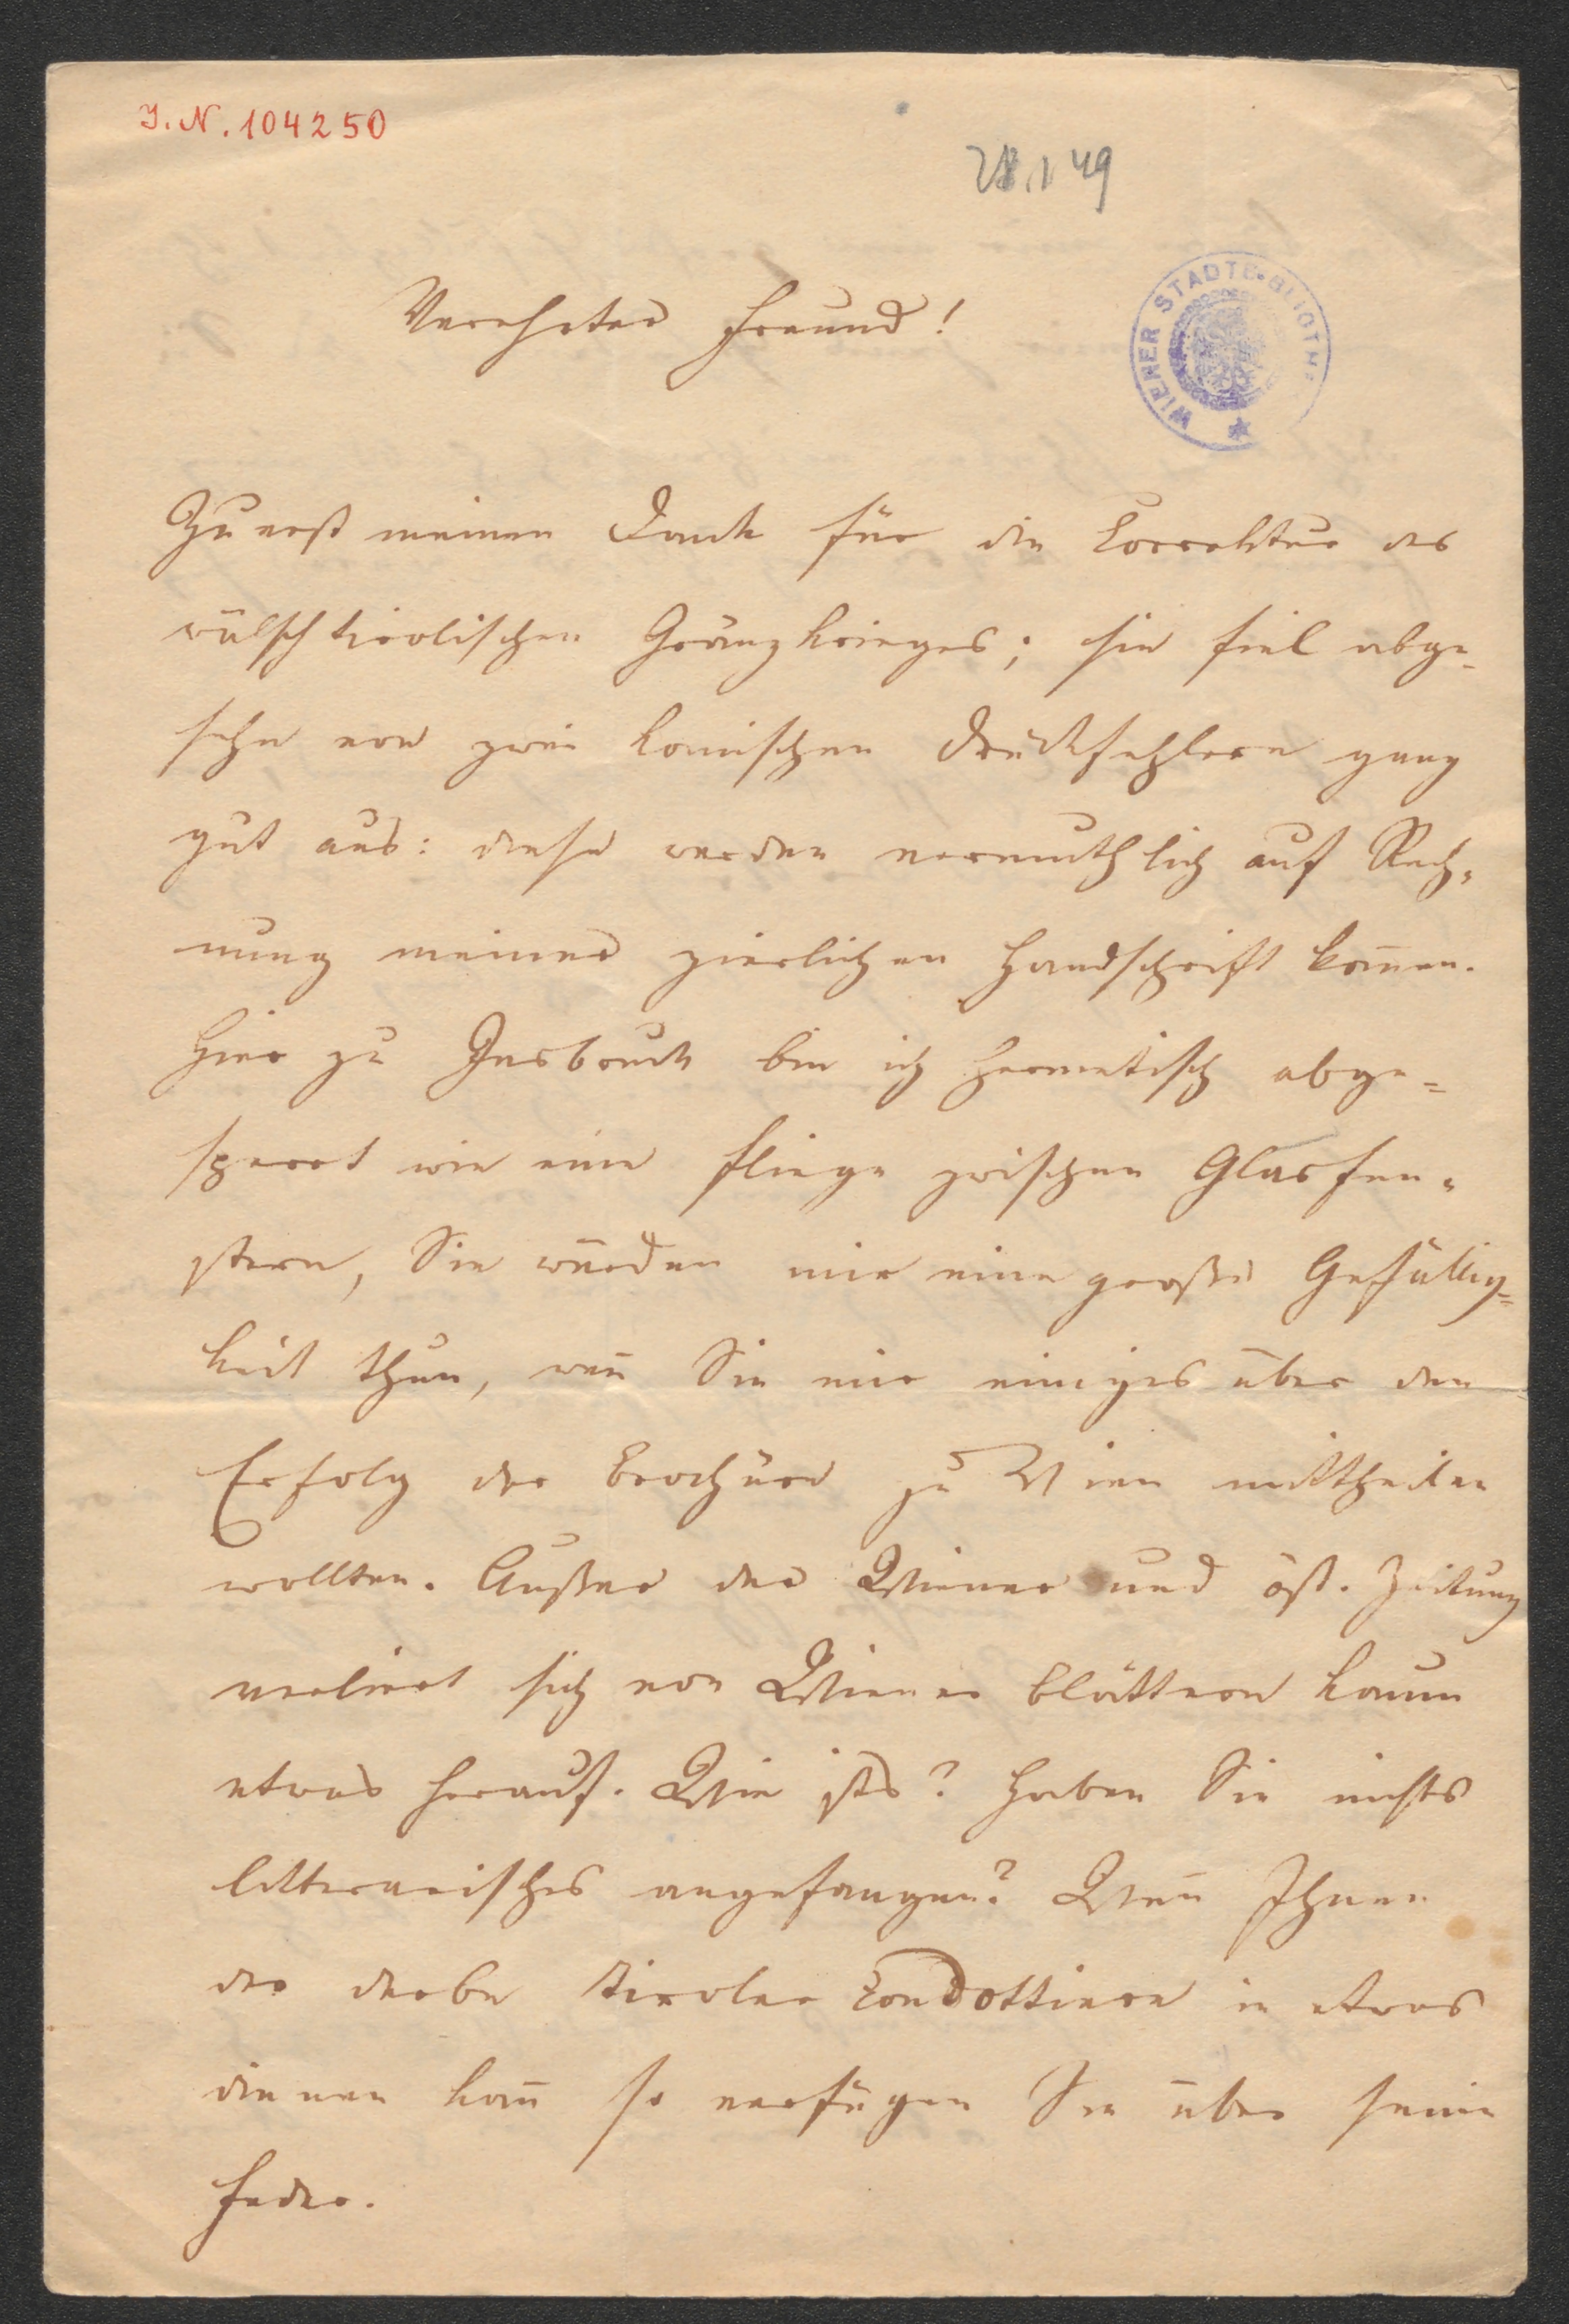 I.N. 104250
28.1 49
WIENER STÄDT. BIBLIOTHE
Verehrter Freund!
Zuerst meinen Dank für die Correktur des
wälschtirolischen Gränzkrieges; sie fiel abge-
sehn von zwei komischen Druckfehlern ganz
gut aus: diese werden vermuthlich auf Rech-
nung meiner zierlichen Handschrift kom̅en.
Hier zu Insbruck bin ich hermetisch abge=
sperrt wie eine Fliege zwischen Glasfen-
stern, Sie würden mir eine große Gefällig=
keit thun, wen̅ Sie mir einiges über den
Erfolg der Brochüre zu Wien mittheilen
wollten. Außer der Wiener und öst. Zeitung
verliert sich von Wiener Blättern kaum
etwas herauf. Wie ists? Haben Sie nichts
litterarisches angefangen? Wen̅ Ihnen
der derbe Tiroler Condottiere in etwas
dienen kan̅ so verfügen Sie über seine
Feder.